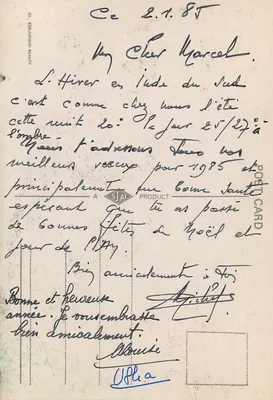 Ce 2.1.85
Mon Cher Marcel
L'Hiver en Inde du Sud
c'est comme chez nous l'été
cette nuit 20° le jour 25/27° à
l'ombre
Nous t'adressons tous nos
meilleurs voeux pour 1985 et
principalement une bonne santé
espérant que tu as passé
de bonnes fêtes de Noël et
jour de l'An.
Bien amicalement à toi
Bonne et heureuse
année. Je vous embrasse
bien amicalement.
Louise
A STAR PRODUCT
POST CARD